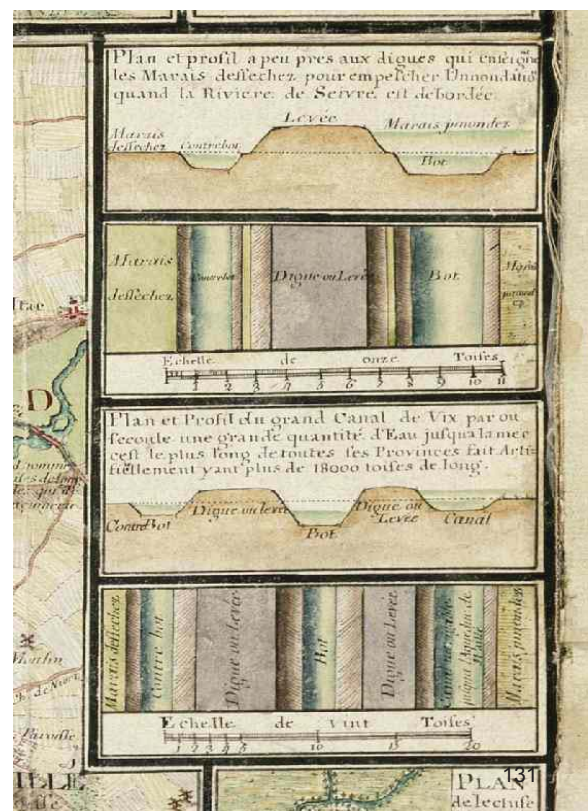 Plan et profil a peu pres aux digues qui enseigne
les Marais dessechez pour empescher l'Innondatio
quand la Riviere de Seivre est debordée.
Levée
Marais dessechez
Contrebot
Marais jnnondez
Bot
Marais dessechez
Contrebot
Digue ou Levée
Bot
Marais
Echelle de onze Toises
1 2 3 4 5 6 7 8 9 10 11
Plan et Profil du grand Canal de Vix par ou
secoule une grande quantité d'Eau jusqua la mer
cest le plus long de toutes ses Provinces fait Arti-
fiellement yant plus de 18000 toises de long.
Contre Bot
Digue ou levée
Bot
Digue ou Levée
Canal
Marais dessechez
Contre bot
Digue ou Levée
Bot
Digue ou Levée
Marais jnnondez
Echelle de vint Toises
1 2 3 4 5 10 15 20
D
Moulin
Paroisse
131
PLAN
de lecluse